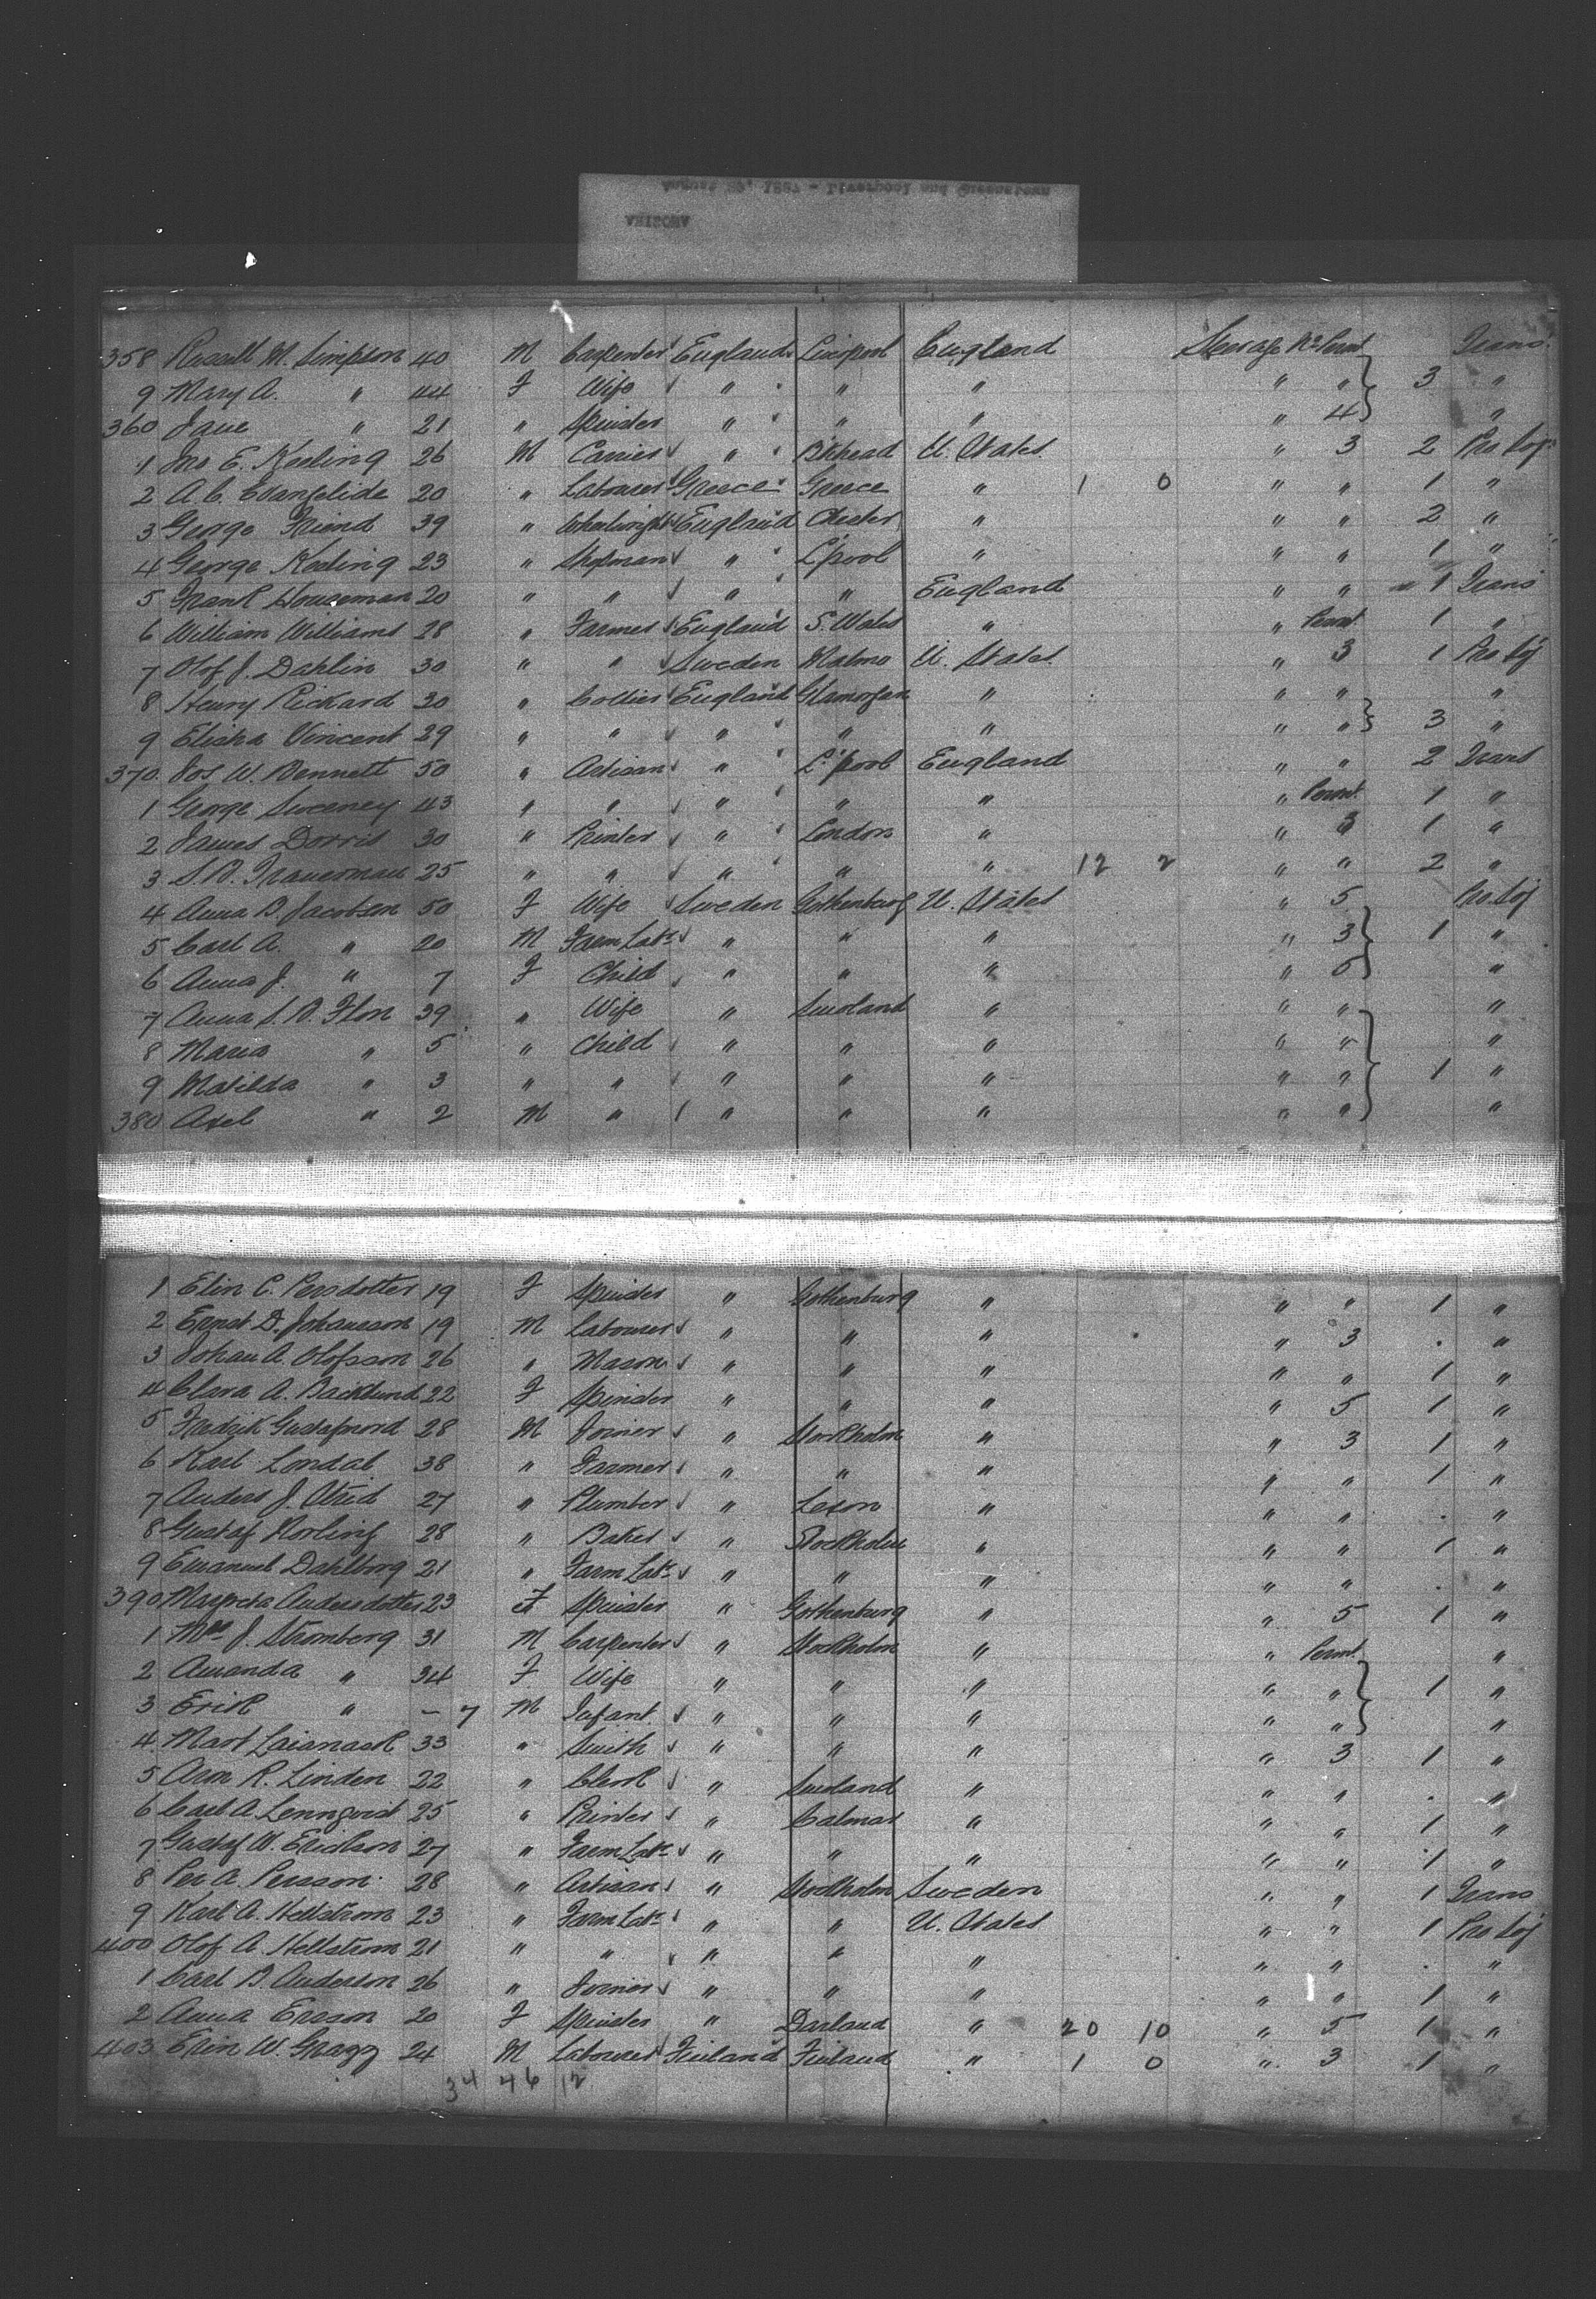 August 29, 1887 - Liverpool and Queenstown
ARIZONA
358 Russell M. Simpson 40 M Carpenter England Liverpool England Steerage No Perm't Trans.
9 Mary A. " 44 F Wife " " " " " 3 "
360 Jane " 21 " Spinster " " " " 4 "
1 Jno E. Keeling 26 M Carrier " B'khead U. States " 3 2 Pro Soj
2 A. C. Evangelide 20 " Labourer Greece Greece " 1 0 " " 1 "
3 George Friend 39 " Wheelwright England Chester " " " 2 "
4 George Keeling 23 " Shopman " L'pool " " " 1 "
5 Frank Houseman 20 " " " " England " " 1 Trans
6 William Williams 28 " Farmer England S. Wales " " Perm't 1 "
7 Olof J. Dahlin 30 " " Sweden Malmo U. States " 3 1 Pro Soj
8 Henry Rickard 30 " Collier England Glamorgan " " " "
9 Elisha Vincent 29 " " " " " " " 3 "
370 Jos. W. Bennett 50 " Artisan " L'pool England " " 2 Trans
1 George Sweeney 43 " " " " " " Perm't 1 "
2 James Dorris 30 " Printer " London " " 3 1 "
3 S. B. 25 " " " " " 12 2 " " 2 "
4 Anna B. Jacobson 50 F Wife Sweden Gothenburg U. States " 5 Pro Soj
5 Carl A. " 20 M Farm Labr " " " " 3 1 "
6 Anna J. " 7 F Child " " " " 5 "
7 Anna S. B. Flon 39 " Wife " Smoland " " " "
8 Maria " 5 " Child " " " " " "
9 Matilda " 3 " " " " " " " 1 "
380 Axel " 2 M " " " " " " "
1 Elin C. Persdotter 19 F Spinster " Gothenburg " " " 1 "
2 Ernst D. Johansson 19 M Labourer " " " " 3 . "
3 Johan A. Olofsson 26 " Mason " " " " " 1 "
4 Clara A. Backlund 22 F Spinster " " " " 5 1 "
5 Fredrik 28 M Joiner " Stockholm " " 3 1 "
6 Karl Londal 38 " Farmer " " " " " 1 "
7 Anders J. 27 " Plumber " " " " . "
8 Gustaf Norling 28 " Baker " Stockholm " " " 1 "
9 Emanuel Dahlborg 21 " Farm Labr " " " " " . "
390 Margreta Andersdotter 23 F Spinster " Gothenburg " " 5 1 "
1 J. Stromberg 31 M Carpenter " Stockholm " " Perm't "
2 Amanda " 34 F Wife " " " " " 1 "
3 Erik " - 7 M Infant " " " " " "
4 Mart 33 " Smith " " " " 3 1 "
5 Aron R. Linden 22 " Clerk " Smoland " " " . "
6 Carl A. Lennqvist 25 " Printer " Calmar " " " 1 "
7 Gustaf W. Erickson 27 " Farm Labr " " " " " 1 "
8 Per A. Persson 28 " Artisan " Stockholm Sweden " " 1 Trans
9 Karl A. Hellstrom 23 " Farm Labr " " U. States " " 1 Pro Soj
400 Olof A. Hellstrom 21 " " " " " " " . "
1 Carl B. Anderson 26 " Joiner " " " " " 1 "
2 Anna Ersson 20 F Spinster " Darland " 20 10 " 5 1 "
403 Erin W. 24 M Labourer Finland Finland " 1 0 " 3 1 "
34 46 12